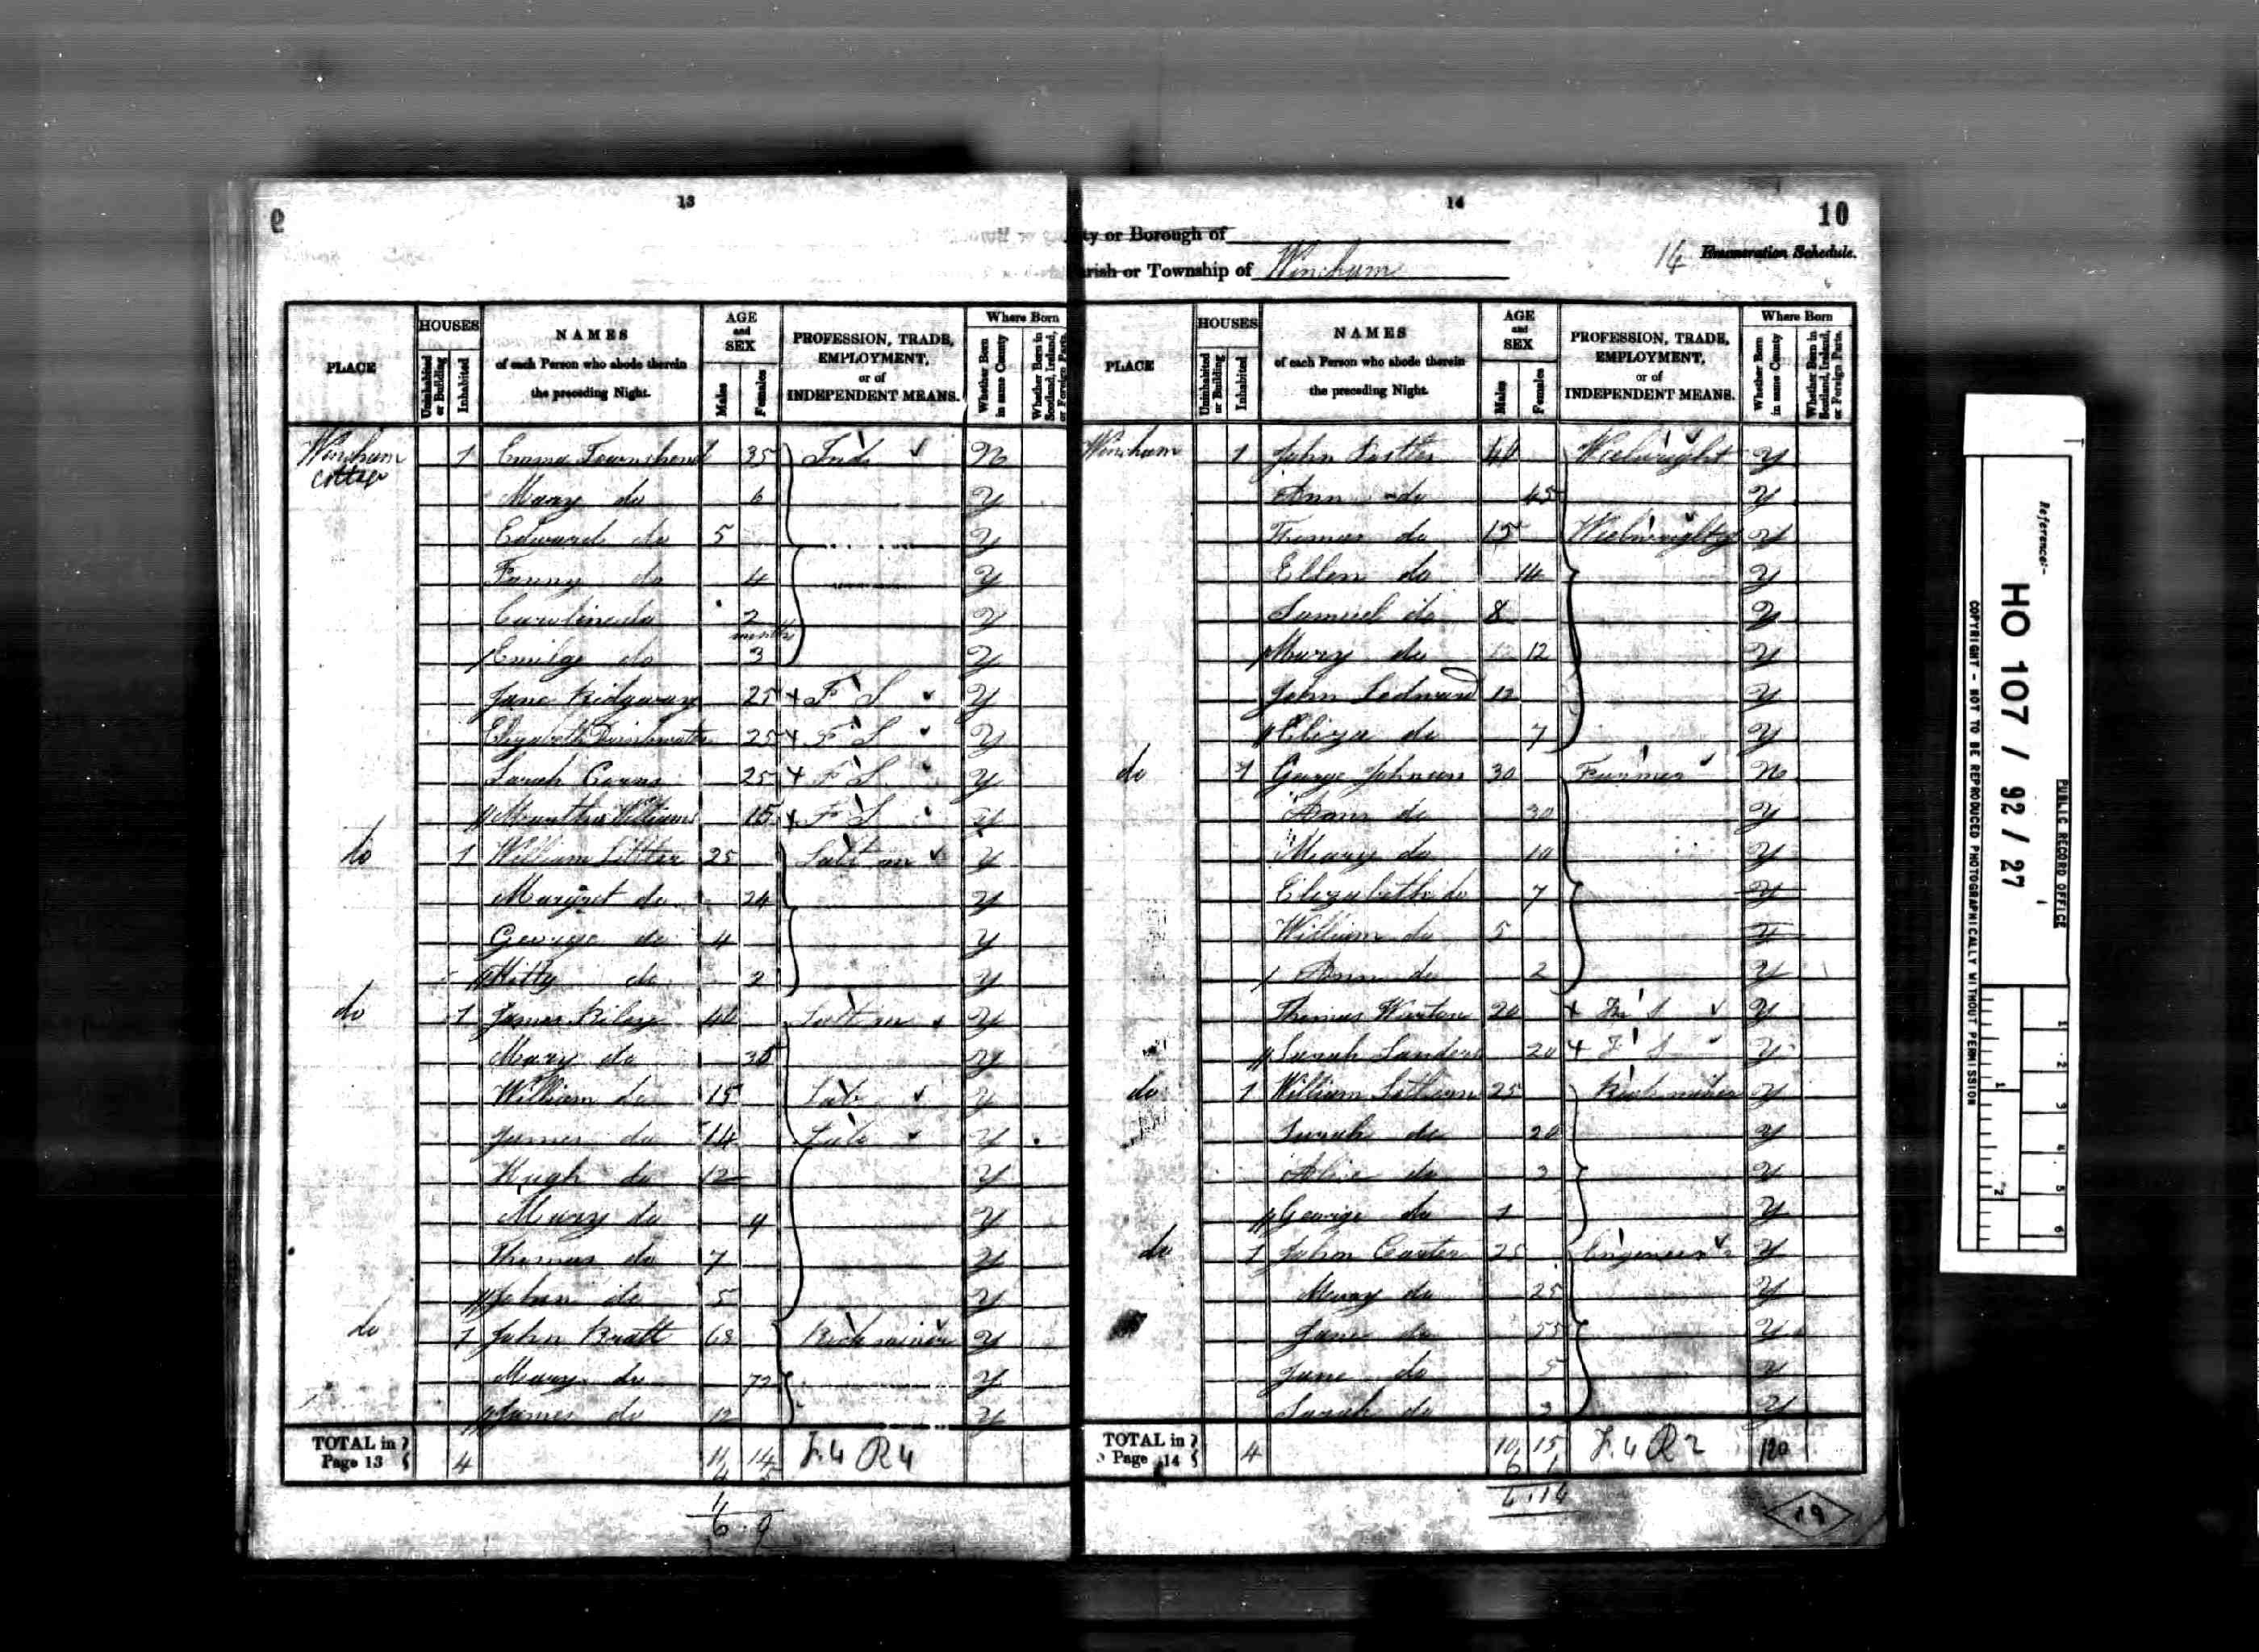 13
9
PLACE
HOUSES
Uninhabited or Building
Inhabited
NAMES
of each Person who abode therein
the preceding Night.
AGE
and
SEX
Males
Females
PROFESSION, TRADE,
EMPLOYMENT,
or of
INDEPENDENT MEANS.
Where Born
Whether Born in same County
Whether Born in Scotland, Ireland, or Foreign Parts.
Wincham Cottage 1 Emma Townshend 35 Ind N
Mary do 6 Y
Edward do 5 Y
Fanny do 4 Y
Caroline do 2 Y
Emily do 3 months Y
Jane Ridgway 25 F S Y
Elizabeth 25 F S Y
Sarah 25 F S Y
Martha Williams 15 F S Y
do 1 William Littler 25 Y
Margret do 24 Y
George do 4 Y
Kitty do 2 Y
do 1 James Riley 40 Y
Mary do Y
William do 15 Lab Y
James do 14 Lab Y
Hugh do 12 Y
Mary do 9 Y
Thomas do 7 Y
John do 5 Y
do 1 John Bratt Y
Mary do Y
James do 12 Y
TOTAL in Page 13 4 11 14 F.4 R 4
4 5
6 9
14
10
ty or Borough of
arish or Township of Wincham
14 Enumeration Schedule.
PLACE
HOUSES
Uninhabited or Building
Inhabited
NAMES
of each Person who abode therein
the preceding Night.
AGE
and
SEX
Males
Females
PROFESSION, TRADE,
EMPLOYMENT,
or of
INDEPENDENT MEANS.
Where Born
Whether Born in same County
Whether Born in Scotland, Ireland, or Foreign Parts.
Wincham 1 John Y
Ann do 45 Y
Thomas do 15 Y
Ellen do 14 Y
Samuel do 8 Y
Mary do 12 Y
John 12 Y
Eliza do 7 Y
do 1 George Johnson 30 Farmer N
Ann do 30 Y
Mary do 10 Y
Elizabeth do 7 Y
William do 5 Y
Ann do 2 Y
Thomas 20 Y
Sarah Sanders 20 F S Y
do 1 William 25 Y
Sarah do 20 Y
Alice do 3 Y
George do 1 Y
do 1 John Carter 25 Engeneer Y
Mary do 25 Y
Jane do 55 Y
Jane do 5 Y
Sarah do Y
TOTAL in Page 14 4 10 15 F.4 R 2 120
6 1
4 14
19
Reference:-
HO 107 / 92 / 27
PUBLIC RECORD OFFICE
COPYRIGHT - NOT TO BE REPRODUCED PHOTOGRAPHICALLY WITHOUT PERMISSION
1
2
1
2
3
4
5
6